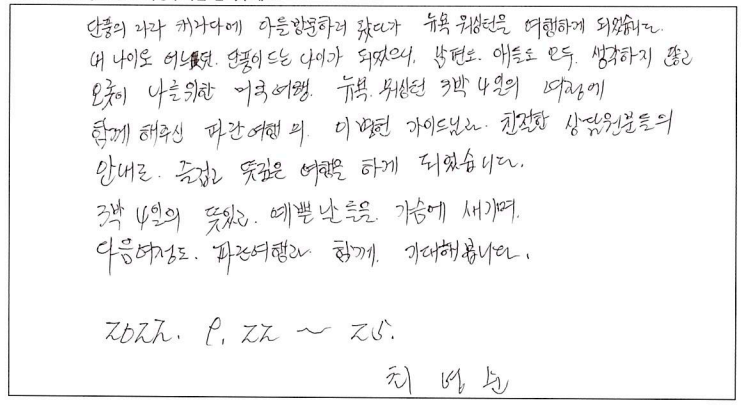 단풍의 나라 캐나다에 아들방문하러 왔다가 뉴욕 워싱턴을 여행하게 되었습니다.
내 나이도 어느덧. 단풍이 드는 나이가 되었으니, 남편도. 애들도 모두. 생각하지 않고
오롯이 나를위한 미국여행. 뉴욕. 워싱턴 3박 4일의 여정에
함께 해주신 파란여행의. 이 가이드님과. 친절한 상담원분들의
안내로. 즐겁고 뜻깊은 여행을 하게 되었습니다.
3박 4일의 뜻있고. 예쁜 날들을. 가슴에 새기며.
다음여정도. 파란여행과 함께. 기대해봅니다.
2022. 9. 22 ~ 25.
최 순